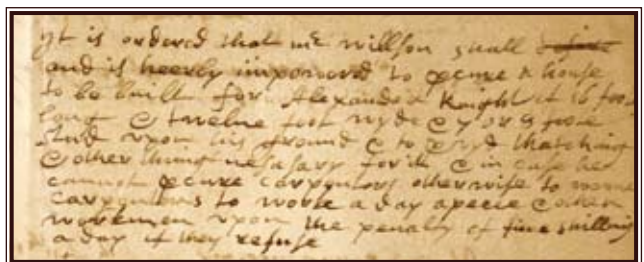 yt is ordered that mr willson shall
and is heerby impowered to pcure a house
to be built for Alexander Knight of 16 foo
long & twelve foot wyde & 7 or 8 foote
stud vpon his ground & to pvyd thatching
& other things nesasary for it & in case he
cannot pcure carpentors otherwise to warne
carpentors to worke a day apeece & other
workemen vpon the penalty of fiue shillings
a day if they refuse